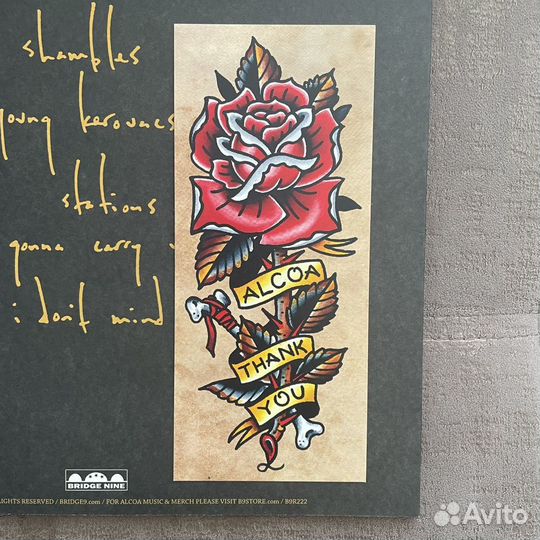 shambles
young kerouacs
stations
gonna carry
i don't mind
ALCOA
THANK
YOU
BRIDGE NINE
RIGHTS RESERVED / BRIDGE9.com / FOR ALCOA MUSIC & MERCH PLEASE VISIT B9STORE.com / B9R222
Avito